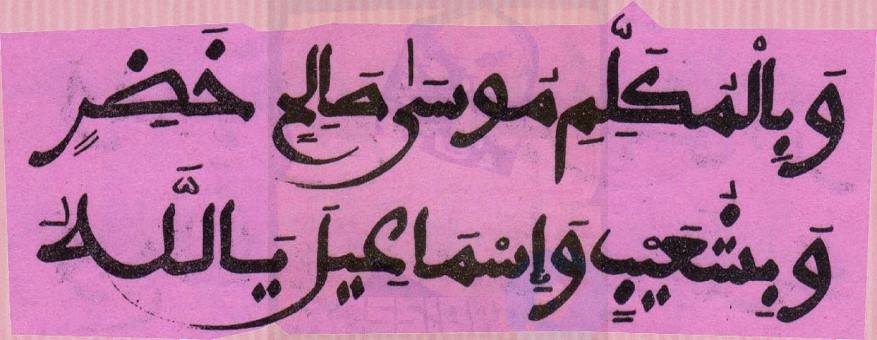 وَبِالْمُكَلَّمِ مُوسَىٰ صَالِحٍ خَضِرٍ
وَبِشُعَيْبٍ وَإِسْمَاعِيلَ يَا اللَّهُ